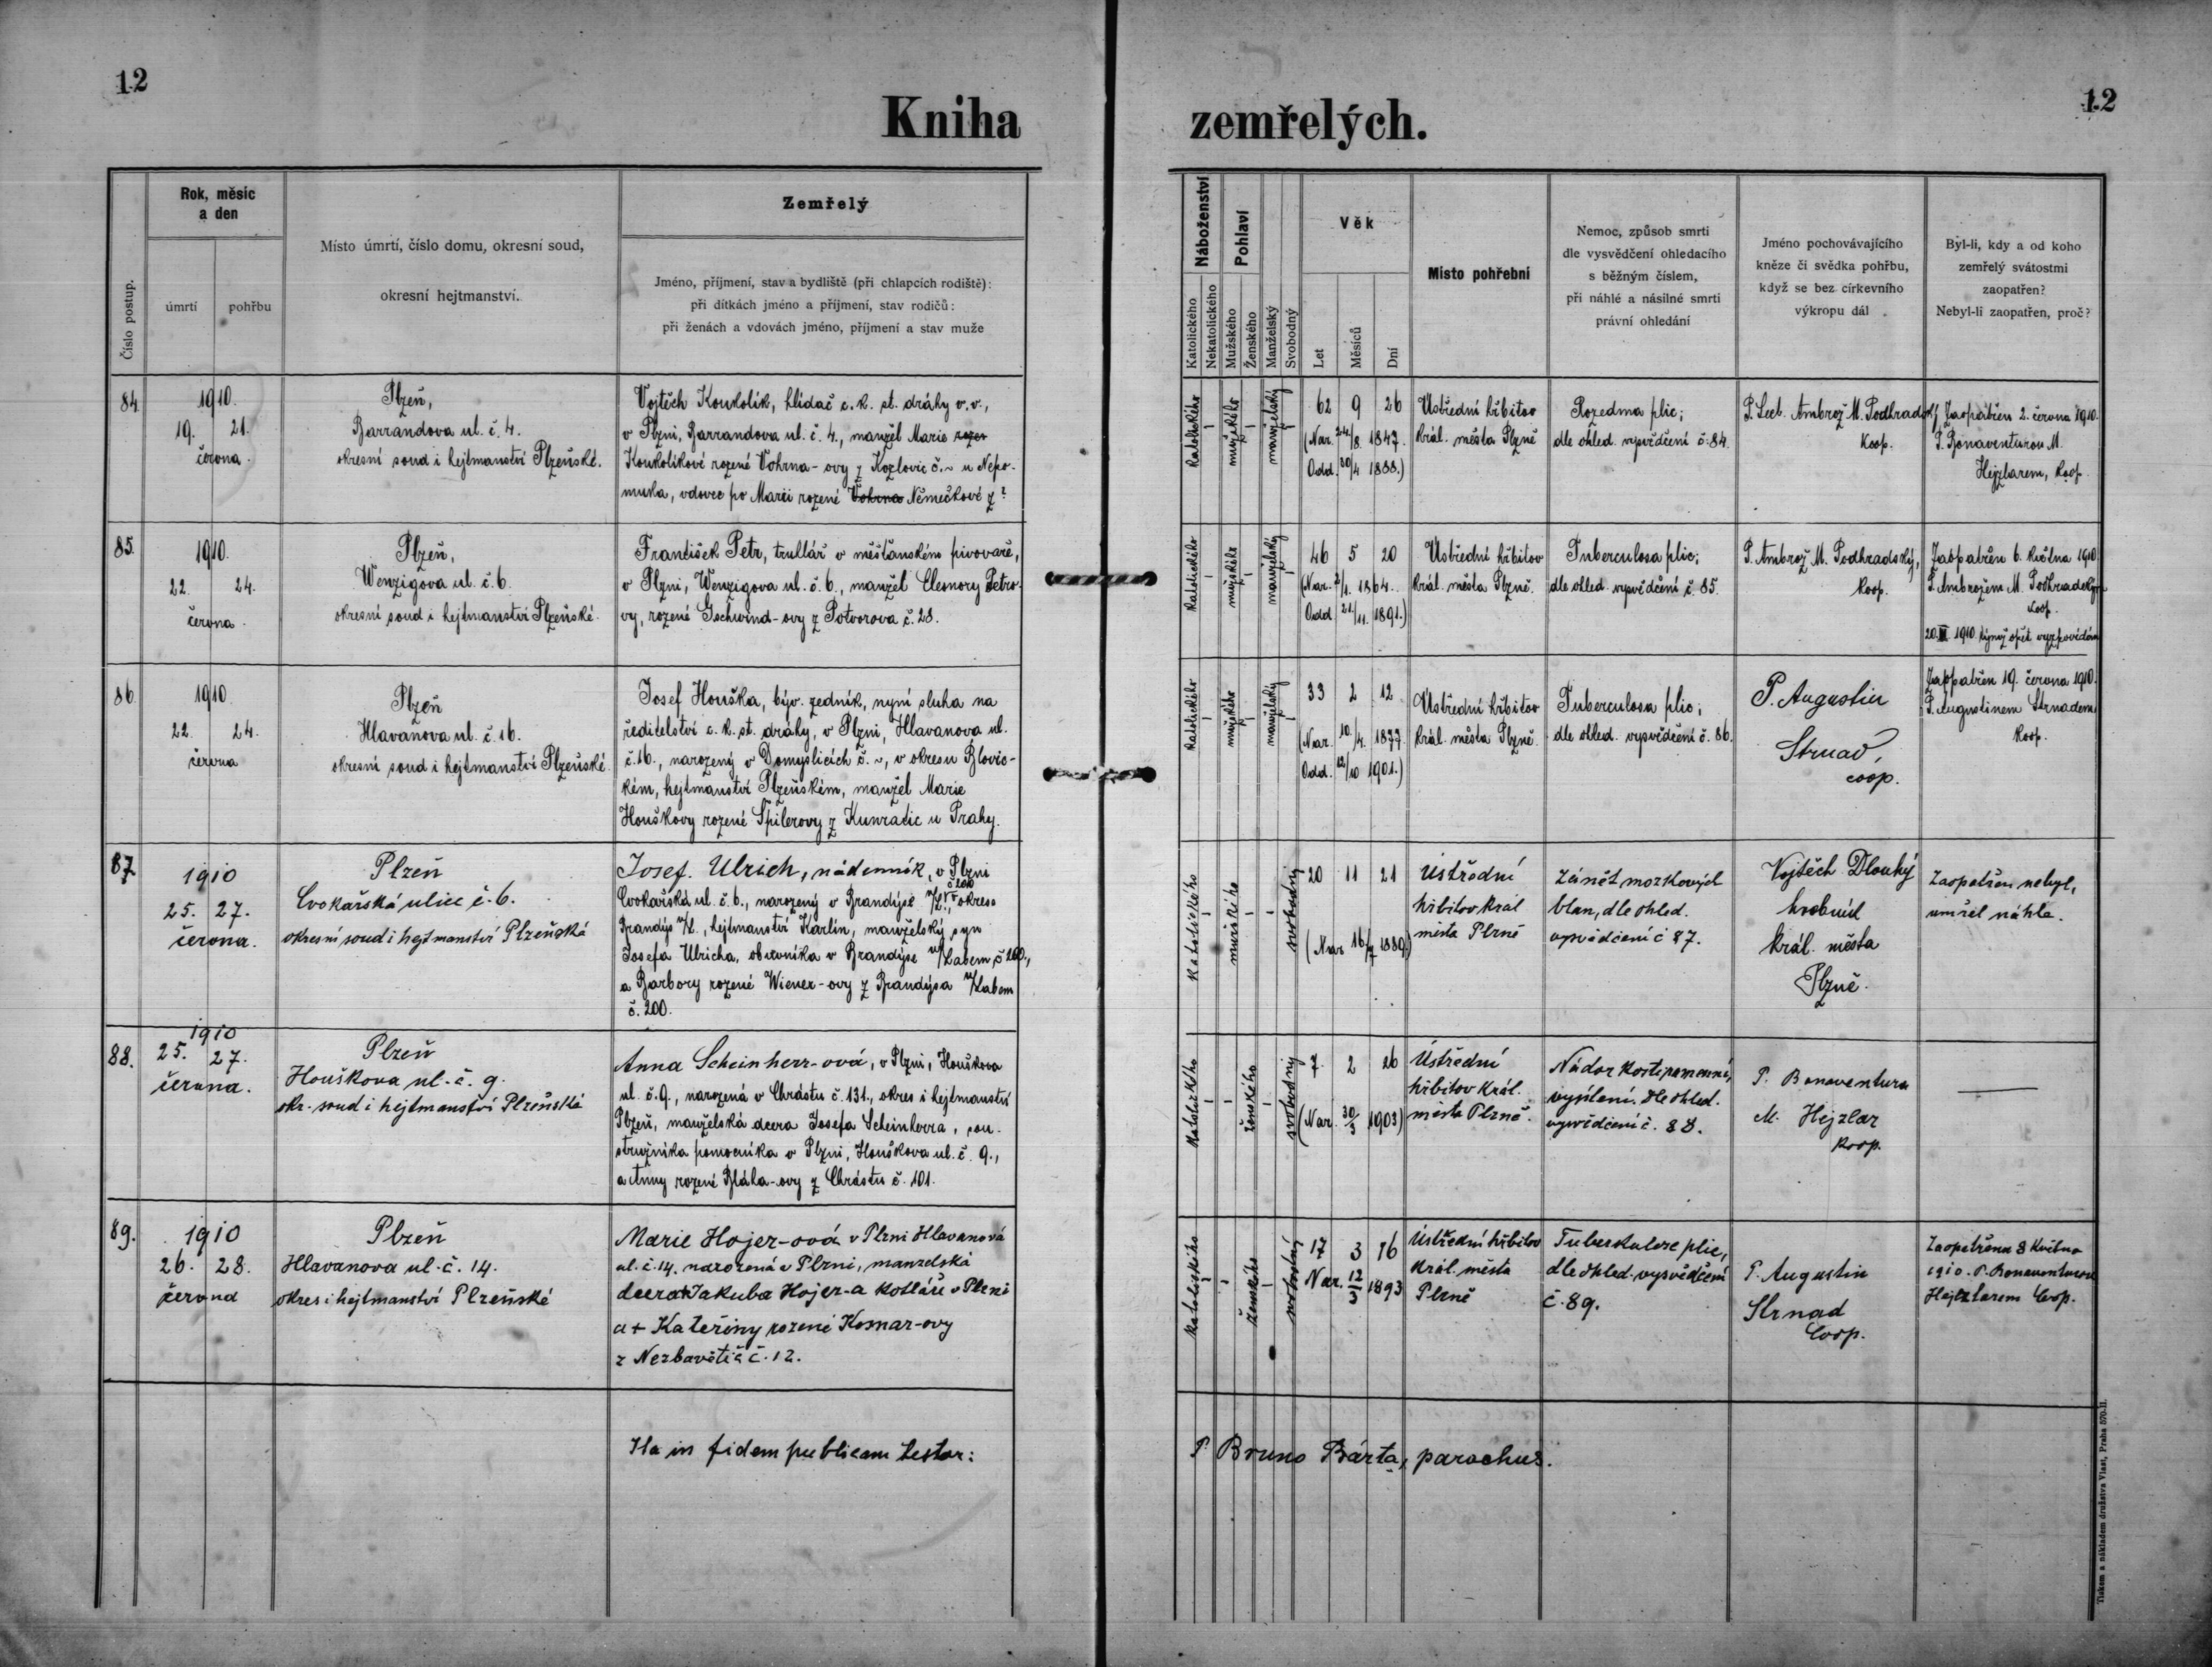 12
12
Kniha zemřelých.
Číslo postup.
Rok, měsíc
a den
úmrtí
pohřbu
Místo úmrtí, číslo domu, okresní soud,
okresní hejtmanství.
Zemřelý
Jméno, příjmení, stav a bydliště (při chlapcích rodiště):
při dítkách jméno a příjmení, stav rodičů:
při ženách a vdovách jméno, příjmení a stav muže
Náboženství
Katolického
Nekatolického
Pohlaví
Mužského
Ženského
Manželský
Svobodný
Věk
Let
Měsíců
Dní
Místo pohřební
Nemoc, způsob smrti
dle vysvědčení ohledacího
s běžným číslem,
při náhlé a násilné smrti
právní ohledání
Jméno pochovávajícího
kněze či svědka pohřbu,
když se bez církevního
výkropu dál
Byl-li, kdy a od koho
zemřelý svátostmi
zaopatřen?
Nebyl-li zaopatřen, proč?
84.
1910.
19. 21.
června.
Plzeň,
Barrandova ul. č. 4.
okresní soud i hejtmanství Plzeňské.
Vojtěch Koukolík, hlídač c. k. st. dráhy v. v.,
v Plzni, Barrandova ul. č. 4., manžel Marie rozen
Koukolíkové rozené Vohrna-ovy z Kozlovic č. ~ u Nepo-
muka, vdovec po Marii rozené Vohrna Němečkové z ?
Katolického
mužského
manželský
62 9 26
(Nar. 24/8. 1847.
Odd. 30/4 1888.)
Ústřední hřbitov
král. města Plzně
Rozedma plic;
dle ohled. vysvědčení č. 84.
P. Leeb. Ambrož M. Podhradský,
koop.
Zaopatřen 2. června 1910.
P. Bonaventurou M.
Hejzlarem, koop.
85.
1910.
22. 24.
června.
Plzeň,
Wenzigova ul. č. 6.
okresní soud i hejtmanství Plzeňské.
František Petr, truhlář v měšťanském pivovaře,
v Plzni, Wenzigova ul. č. 6., manžel Eleonory Petro-
vy, rozené Gschwind-ovy z Potvorova č. 28.
Katolického
mužského
manželský
46 5 20
(Nar. 2/1. 1864.
Odd. 21/11. 1891.)
Ústřední hřbitov
král. města Plzně.
Tuberculosa plic;
dle ohled. vysvědčení č. 85.
P. Ambrož M. Podhradský,
koop.
Zaopatřen 6. května 1910
P. Ambrožem M. Podhradským
koop.
20. VI 1910 týmž opět vyzpovídán
86
1910
22. 24.
června
Plzeň
Hlavanova ul. č. 16.
okresní soud i hejtmanství Plzeňské
Josef Houška, býv. zedník, nyní sluha na
ředitelství c. k. st. dráhy, v Plzni, Hlavanova ul.
č. 16., narozený v Domyslicích č. ~, v okresu Blovic-
kém, hejtmanství Plzeňském, manžel Marie
Houškovy rozené Špilerovy z Kunratic u Prahy.
Katolického
mužského
manželský
33 2 12
(Nar. 10/4. 1877.
Odd. 12/10 1901.)
Ústřední hřbitov
král. města Plzně.
Tuberculosa plic;
dle ohled. vysvědčení č. 86.
P. Augustin
Strnad,
coop.
Zaopatřen 19. června 1910.
P. Augustinem Strnadem
koop.
87
1910
25. 27.
června.
Plzeň
Cvokařská ulice č. 6.
okresní soud i hejtmanství Plzeňská
Josef Ulrich, nádenník, v Plzni
Cvokařská ul. č. 6., narozený v Brandýse n/L., č 200 okres
Brandýs n/L., hejtmanství Karlín, manželský syn
Josefa Ulricha, obuvníka v Brandýse n/Labem č 200.,
a Barbory rozené Wiener-ovy z Brandýsa n/Labem
č. 200.
Katolického
mužského
svobodný
20 11 21
(Nar. 16/7 1889)
Ústřední
hřbitov král
města Plzně
Zánět mozkových
blan, dle ohled.
vysvědčení č 87.
Vojtěch Dlouhý
hrobník
král. města
Plzně.
Zaopatřen nebyl,
umřel náhle.
88.
1910
25. 27.
června.
Plzeň
Houškova ul. č. 9.
okr. soud i hejtmanství Plzeňská
Anna Scheinherr-ová, v Plzni, Houškova
ul. č. 9., narozená v Chrástu č. 131., okres i hejtmanství
Plzeň, manželská dcera Josefa Scheinherra, sou-
stružníka pomocníka v Plzni, Houškova ul. č. 9.,
a Anny rozené Bláha-ovy z Chrástu č. 101.
Katolického
ženského
svobodný
7 2 26
(Nar. 30/3 1903)
Ústřední
hřbitov král.
města Plzně.
Nádor kosti ramenní,
vysílení. dle ohled.
vysvědčení č. 88.
P. Bonaventura
M. Hejzlar
koop.
89.
1910
26. 28.
června
Plzeň
Hlavanova ul. č. 14.
okres i hejtmanství Plzeňské
Marie Hojer-ová v Plzni Hlavanová
ul. č. 14. narozená v Plzni, manželská
dcera + Jakuba Hojer-a kotláře v Plzni
a + Kateřiny rozené Komar-ovy
z Nezbavětic č. 12.
Katolického
ženského
svobodný
17 3 16
Nar. 12/3 1893
Ústřední hřbitov
král. města
Plzně
Tuberkuloze plic,
dle ohled. vysvědčení
č. 89.
P. Augustin
Strnad
Coop.
Zaopatřena 8 května
1910. P. Bonaventurou
Hejzlarem Coop.
Ita in fidem publicam testor:
P. Bruno Bárta, parochus.
Tiskem a nákladem družstva Vlast, Praha 570-II.